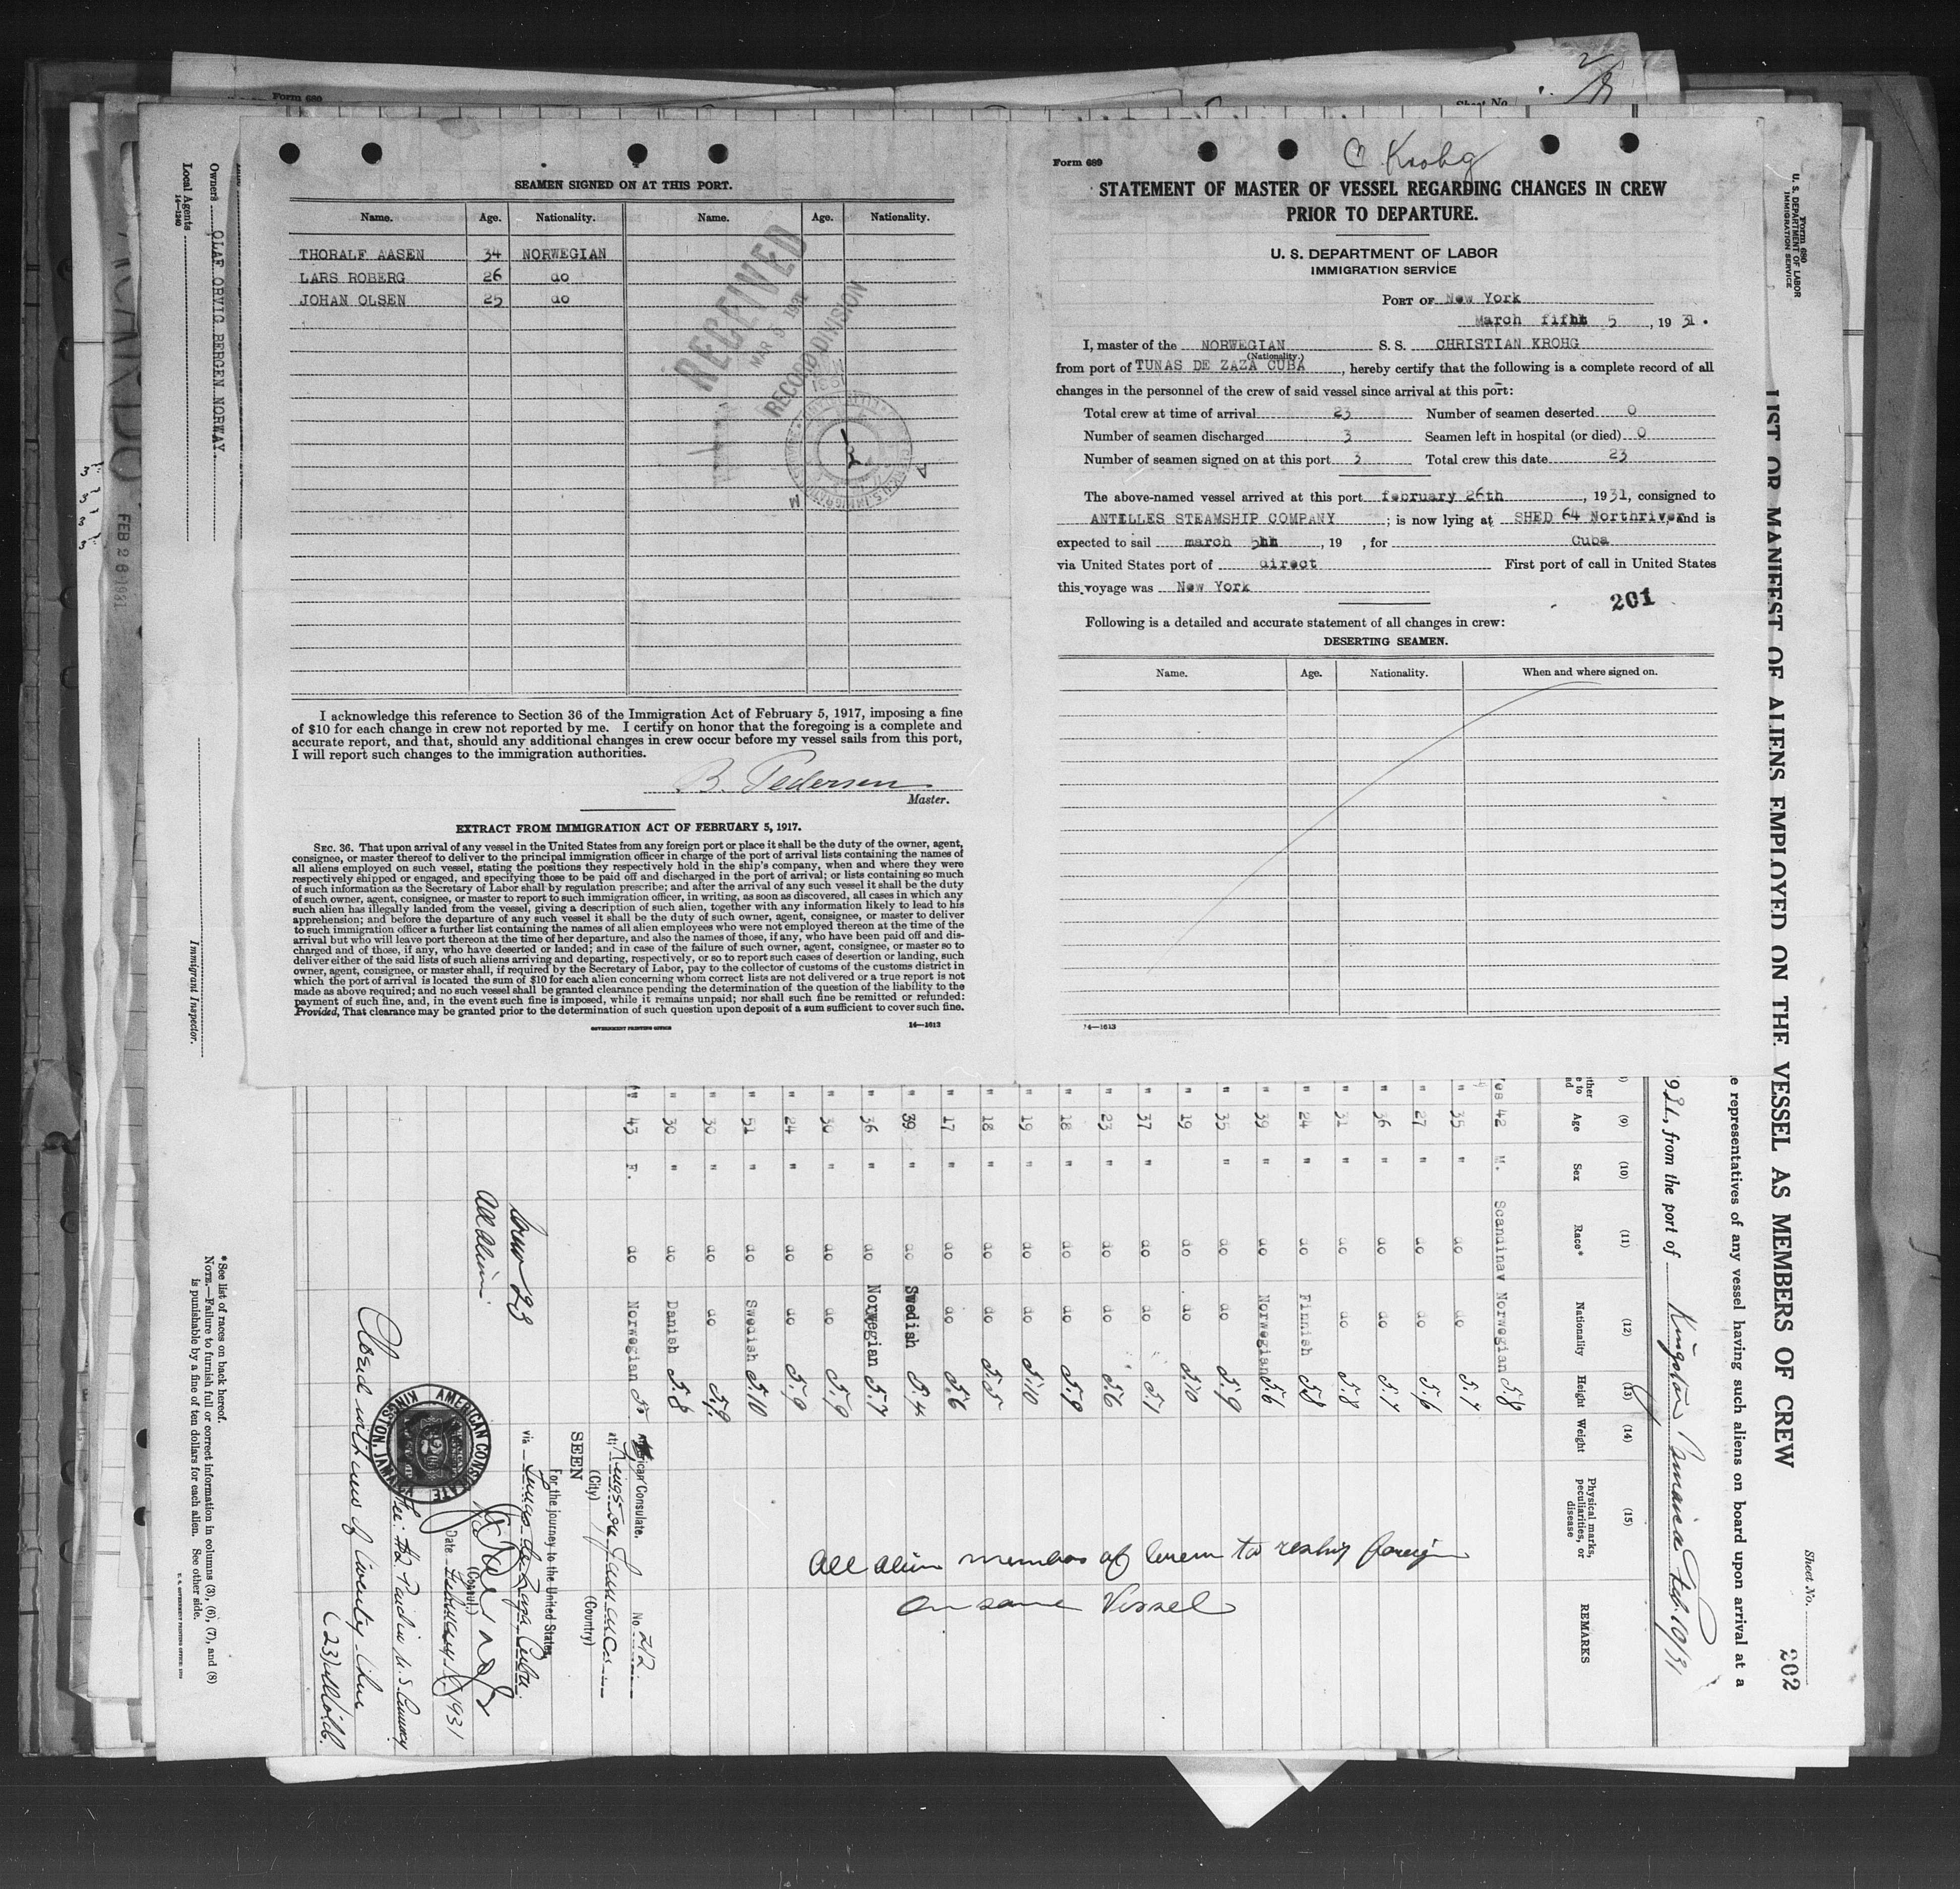 Form 689
SEAMEN SIGNED ON AT THIS PORT.
Name. Age. Nationality. Name. Age. Nationality.
THORALF AASEN 34 NORWEGIAN
LARS ROBERG 26 do
JOHAN OLSEN 25 do
RECEIVED
MAR 9 1931
RECORD DIVISION
I acknowledge this reference to Section 36 of the Immigration Act of February 5, 1917, imposing a fine
of $10 for each change in crew not reported by me. I certify on honor that the foregoing is a complete and
accurate report, and that, should any additional changes in crew occur before my vessel sails from this port,
I will report such changes to the immigration authorities.
B. Pedersen
Master.
EXTRACT FROM IMMIGRATION ACT OF FEBRUARY 5, 1917.
SEC. 36. That upon arrival of any vessel in the United States from any foreign port or place it shall be the duty of the owner, agent,
consignee, or master thereof to deliver to the principal immigration officer in charge of the port of arrival lists containing the names of
all aliens employed on such vessel, stating the positions they respectively hold in the ship's company, when and where they were
respectively shipped or engaged, and specifying those to be paid off and discharged in the port of arrival; or lists containing so much
of such information as the Secretary of Labor shall by regulation prescribe; and after the arrival of any such vessel it shall be the duty
of such owner, agent, consignee, or master to report to such immigration officer, in writing, as soon as discovered, all cases in which any
such alien has illegally landed from the vessel, giving a description of such alien, together with any information likely to lead to his
apprehension; and before the departure of any such vessel it shall be the duty of such owner, agent, consignee, or master to deliver
to such immigration officer a further list containing the names of all alien employees who were not employed thereon at the time of the
arrival but who will leave port thereon at the time of her departure, and also the names of those, if any, who have been paid off and dis-
charged and of those, if any, who have deserted or landed; and in case of the failure of such owner, agent, consignee, or master so to
deliver either of the said lists of such aliens arriving and departing, respectively, or so to report such cases of desertion or landing, such
owner, agent, consignee, or master shall, if required by the Secretary of Labor, pay to the collector of customs of the customs district in
which the port of arrival is located the sum of $10 for each alien concerning whom correct lists are not delivered or a true report is not
made as above required; and no such vessel shall be granted clearance pending the determination of the question of the liability to the
payment of such fine, and, in the event such fine is imposed, while it remains unpaid; nor shall such fine be remitted or refunded:
Provided, That clearance may be granted prior to the determination of such question upon deposit of a sum sufficient to cover such fine.
GOVERNMENT PRINTING OFFICE 14—1613
Form 689
C Krohg
STATEMENT OF MASTER OF VESSEL REGARDING CHANGES IN CREW
PRIOR TO DEPARTURE.
U. S. DEPARTMENT OF LABOR
IMMIGRATION SERVICE
PORT OF New York
March 5, 1931.
I, master of the NORWEGIAN S. S. CHRISTIAN KROHG
(Nationality.)
from port of TUNAS DE ZAZA CUBA, hereby certify that the following is a complete record of all
changes in the personnel of the crew of said vessel since arrival at this port:
Total crew at time of arrival 23 Number of seamen deserted 0
Number of seamen discharged 3 Seamen left in hospital (or died) 0
Number of seamen signed on at this port 3 Total crew this date 23
The above-named vessel arrived at this port february 26th, 1931, consigned to
ANTILLES STEAMSHIP COMPANY; is now lying at SHED 64 Northriver, and is
expected to sail march 5, 19 , for Cuba
via United States port of direct First port of call in United States
this voyage was New York
201
Following is a detailed and accurate statement of all changes in crew:
DESERTING SEAMEN.
Name. Age. Nationality. When and where signed on.
14—1613
Form 680
U. S. DEPARTMENT OF LABOR
IMMIGRATION SERVICE
Sheet No.
202
LIST OR MANIFEST OF ALIENS EMPLOYED ON THE VESSEL AS MEMBERS OF CREW
representatives of any vessel having such aliens on board upon arrival at a
from the port of Kingston Jamaica Feb. 19/31
(9) (10) (11) (12) (13) (14) (15)
Age Sex Race* Nationality Height Weight Physical marks, peculiarities, or disease REMARKS
42 M. Scandinav Norwegian 5.8
" 35 " do do 5.7
" 27 " do do 5.6
" 36 " do do 5.7
" 31 " do do 5.8
" 24 " do Finnish 5.8
" 39 " do Norwegian 5.6
" 35 " do do 5.9
" 19 do do 5.10
" 37 " do do 5.7
" 23 " do do 5.6
" 18 " do do 5.9
" 19 " do do 5.10
" 18 " do do 5.5
" 17 " do do 5.6
" 39 " do Swedish 5.4
" 36 " do Norwegian 5.7
" 30 " do do 5.9
" 24 " do do 5.9
" 51 " do Swedish 5.10
" 30 " do do 5.9
" 30 " do Danish 5.8
" 43 F. do Norwegian 5.5
All alien members of crew to reship foreign
on same Vessel
Crew 23
All aliens
American Consulate. No. 212
at Kingston, Jamaica
(City) (Country)
SEEN
For the journey to the United States
via Tunas de Zaza, Cuba.
(Consul.)
Date February 19, 1931
Fee: $2 Paid in U. S. Currency
AMERICAN CONSULATE
KINGSTON, JAMAICA
Closed with crew of twenty-three
(23)
*See list of races on back hereof.
NOTE.—Failure to furnish full or correct information in columns (3), (6), (7), and (8)
is punishable by a fine of ten dollars for each alien. See other side.
Owners OLAF ORVIG BERGEN NORWAY.
Local Agents
14—1240
Immigrant Inspector.
FEB 28 1931